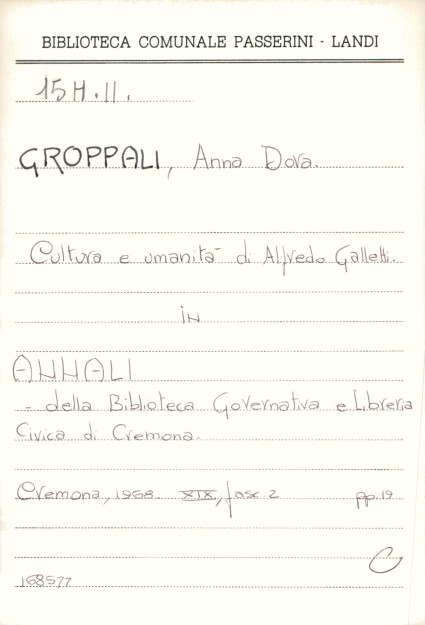 BIBLIOTECA COMUNALE PASSERINI - LANDI
15H.II.
GROPPALI, Anna Dora.
Cultura e umanità di Alfredo Galletti.
in
ANNALI
- della Biblioteca Governativa e Libreria
Civica di Cremona.
Cremona, 1968. XIX, fasc. 2 pp. 19
C
168577